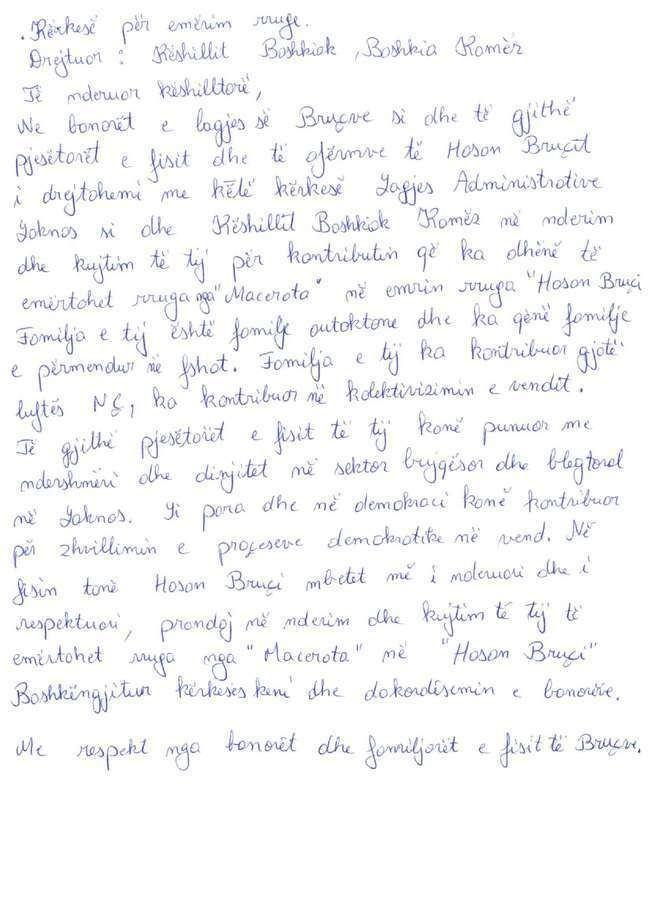 . Kërkesë për emërim rruge.
Drejtuar : Këshillit Bashkiak , Bashkia Kamëz
Të nderuar këshilltarë,
Ne banorët e lagjes së Bruçve si dhe të gjithë
pjesëtarët e fisit dhe të afërmve të Hasan Bruçit
i drejtohemi me këtë kërkesë Lagjes Administrative
Laknas si dhe Këshillit Bashkiak Kamëz në nderim
dhe kujtim të tij për kontributin që ka dhënë të
emërtohet rruga nga "Macerata" në emrin rruga "Hasan Bruçi
Familja e tij është familje autoktone dhe ka qënë familje
e përmendur në fshat. Familja e tij ka kontribuar gjatë
luftës NÇ, ka kontribuar në kolektivizimin e vendit.
Të gjithë pjesëtarët e fisit të tij kanë punuar me
ndershmëri dhe dinjitet në sektor bujqësor dhe blegtoral
në Laknas. Si para dhe në demokraci kanë kontribuar
për zhvillimin e proçeseve demokratike në vend. Në
fisin tonë Hasan Bruçi mbetet më i nderuari dhe i
respektuari, prandaj në nderim dhe kujtim të tij të
emërtohet rruga nga "Macerata" në "Hasan Bruçi"
Bashkëngjitur kërkeses keni dhe dakordësemin e banorëve.
Me respekt nga banorët dhe familjarët e fisit të Bruçve.